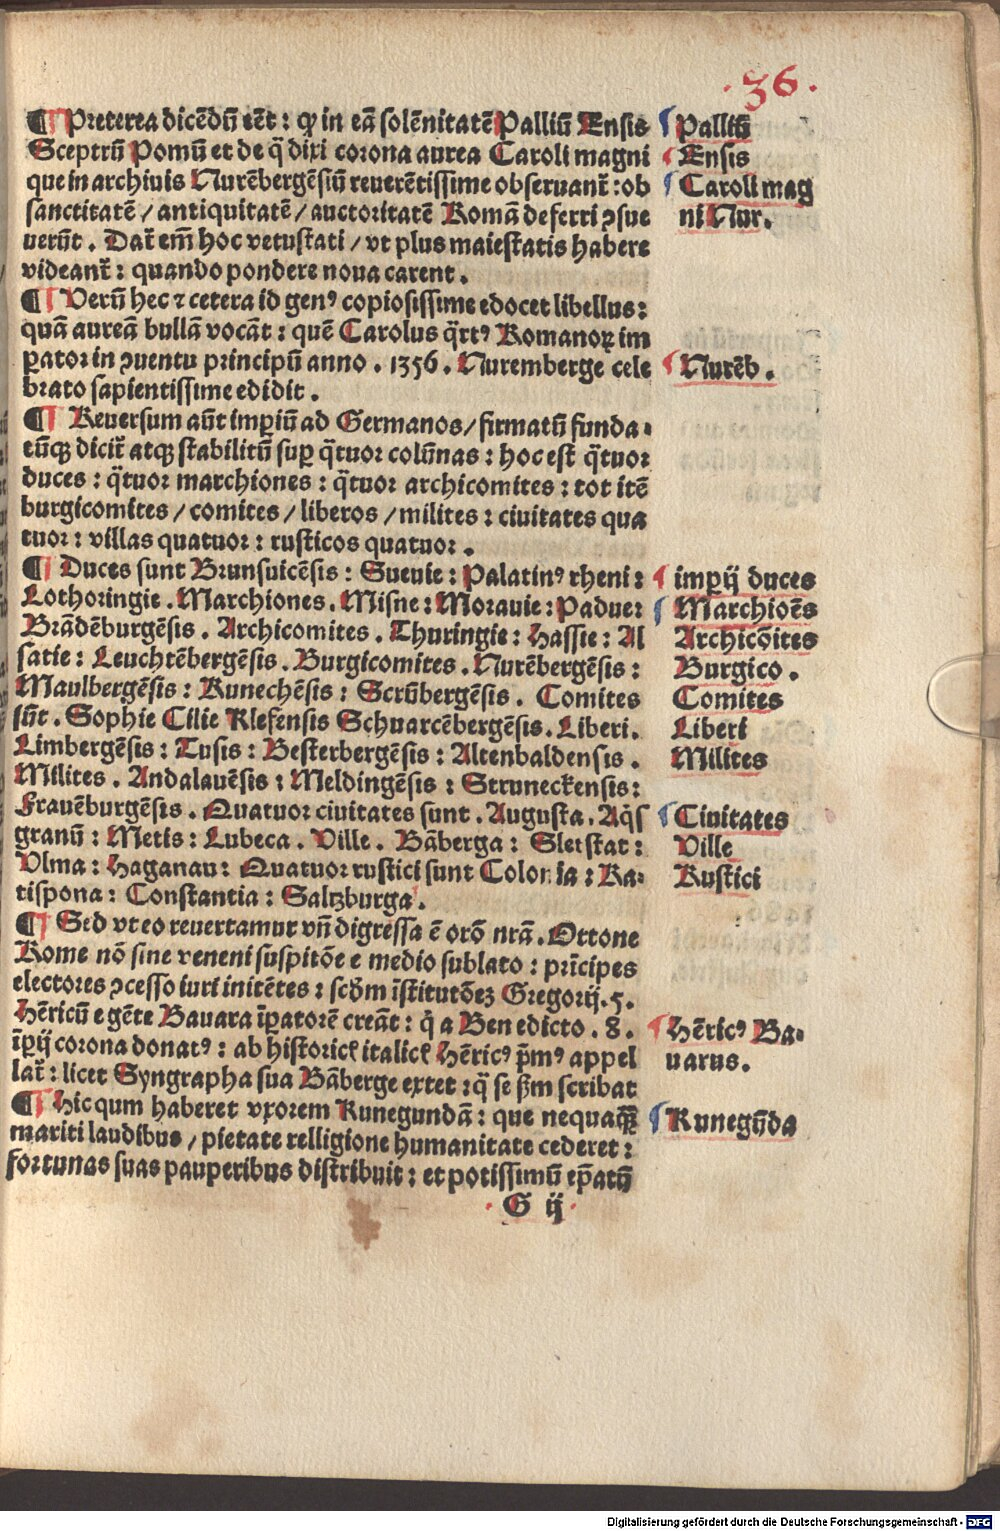 .36.
¶ Preterea dicēdū eēt : ꝙ in eā solēnitatē Palliū Ensis
Sceptrū Pomū et de q̄ dixi corona aurea Caroli magni
que in archiuis Nurēbergēsiū reuerētissime obseruant̄ : ob
sanctitatē / antiquitatē / auctoritatē Romā deferri ꝯsue
uerūt . Dat̄ em̄ hoc vetustati / vt plus maiestatis habere
videant̄ : quando pondere noua carent .
¶ Verū hec ⁊ cetera id genꝰ copiosissime edocet libellus :
quā aureā bullā vocāt : quē Carolus q̄rtꝰ Romanoꝝ im
perator in ꝯuentu principū anno . 1356 . Nuremberge cele
brato sapientissime edidit .
¶ Reuersum aūt imꝑiū ad Germanos / firmatū funda⸗
tūqꝫ dicit̄ atqꝫ stabilitū suꝑ q̄tuor colūnas : hoc est q̄tuor
duces : q̄tuor marchiones : q̄tuor archicomites : tot itē
burgicomites / comites / liberos / milites : ciuitates qua
tuor : villas quatuor : rusticos quatuor .
¶ Duces sunt Brunsuicēsis : Sueuie : Palatinꝰ rheni :
Lothoringie . Marchiones . Misne : Morauie : Padue :
Brādēburgēsis . Archicomites . Thuringie : Hassie : Al
satie : Leuchtēbergēsis . Burgicomites . Nurēbergēsis :
Maulbergēsis : Runechēsis : Scrūbergēsis . Comites
sūt . Sophie Cilie Klefensis Schuarcēbergēsis . Liberi .
Limbergēsis : Tusis : Besterbergēsis : Altenbaldensis .
Milites . Andalauēsis : Meldingēsis : Struneckensis :
Frauēburgēsis . Quatuor ciuitates sunt . Augusta . Aq̄s
granū : Metis : Lubeca . Ville . Bāberga : Sletstat :
Vlma : Haganau : Quatuor rustici sunt Colonia : Ra⸗
tispona : Constantia : Saltzburga .
¶ Sed vt eo reuertamur vn̄ digressa ē orō nrā . Ottone
Rome nō sine veneni suspitōe e medio sublato : prīcipes
electores ꝯcesso iuri initētes : scḋm īstitutōeꝫ Gregorij . 5 .
Hēricū e gēte Bauara īꝑatorē creāt : q̇ a Benedicto . 8 .
īꝑij corona donatꝰ : ab historicꝭ italicꝭ Hēricꝰ p̄mꝰ appel
lat̄ : licet Syngrapha sua Bāberge extet : q̄ se ẜm scribat
¶ Hic qum haberet vxorem Kunegundā : que nequaq̄ꝫ
mariti laudibus / pietate relligione humanitate cederet :
fortunas suas pauperibus distribuit : et potissimū ep̄atū
G ij
Palliū
Ensis
Caroli mag
ni Nur .
Nurēb .
imꝑij duces
Marchiōēs
Archicōites
Burgico .
Comites
Liberi
Milites
Ciuitates
Ville
Rustici
Hēricꝰ Ba⸗
uarus .
Kunegūda
Digitalisierung gefördert durch die Deutsche Forschungsgemeinschaft - DFG